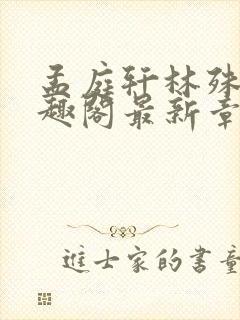 孟庭轩林殊
趣阁最新章
进士家的书童